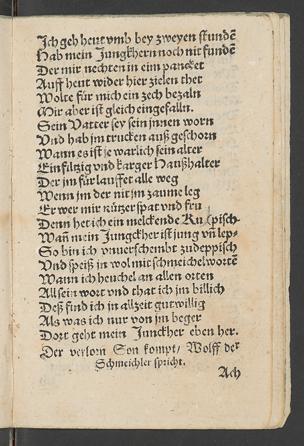 Ich geh heut vmb bey zweyen stundẽ
Hab mein Jungkhern noch nit fundẽ
Der mir nechten in eim pancket
Auff heut wider hier zielen thet
Wolte für mich ein zech bezaln
Mir aber ist gleich eingefalln.
Sein Vatter sey sein innen worn
Vnd hab jm trucken auß geschorn
Wann es ist je warlich sein alter
Einfiltzig vnd karger Haußhalter
Der jm für lauffet alle weg
Wenn jm der nit jm zaume leg
Er wer mir nützer spat vnd fru
Denn het ich ein melckende Ku (pisch-
Wañ mein Jungckher ist jung vñ lep-
So bin ich vnuerschembt zudeppisch
Vnd speiß in wol mit schmeichelwortẽ
Wann ich heuchel an allen orten
All sein wort vnd that ich jm billich
Deß find ich in allzeit gutwillig
Als was ich nur von jm beger
Dort geht mein Junckher eben her.
Der verlorn Son kompt/ Wolff der
Schmeichler spricht.
Ach